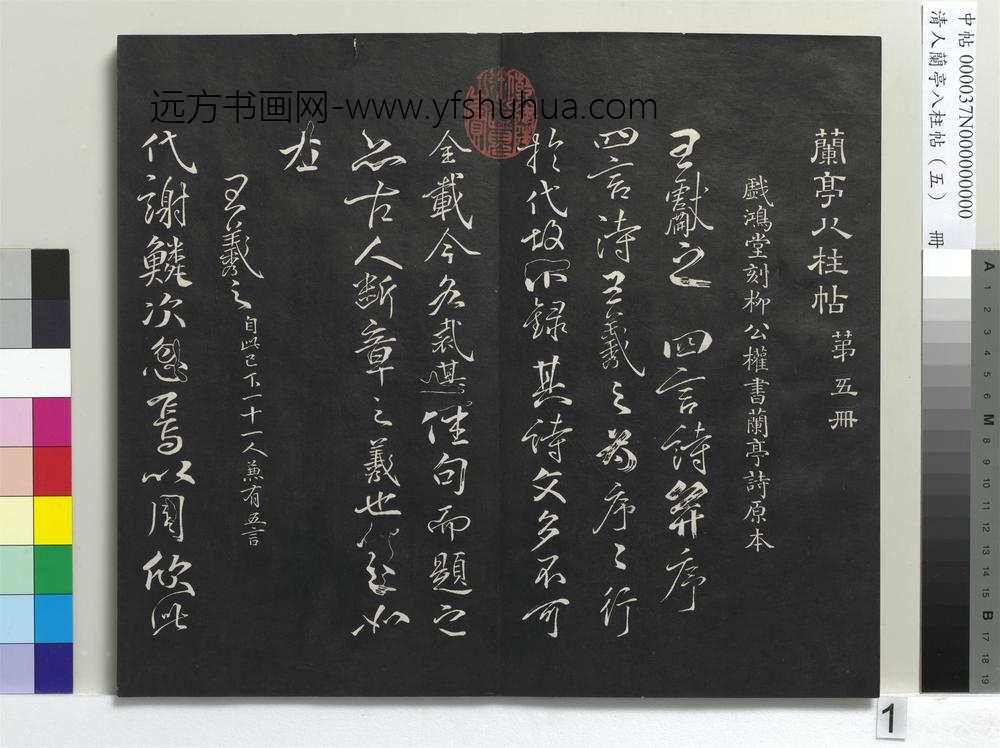 蘭亭八柱帖 第五冊
戲鴻堂刻柳公權書蘭亭詩原本
王獻之 四言詩并序
四言詩王羲之為序序行
於代故不錄其詩文多不可
全載今各裁其佳句而題之
亦古人斷章之義也
左
王羲之自此已下一十一人兼有五言
代謝鱗次忽焉以周欣此
远方书画网-www.yfshuhua.com
中帖 000037N000000000
清人蘭亭八柱帖（五） 冊
1
A 1 2 3 4 5 6 M 8 9 10 11 12 13 14 15 B 17 18 19